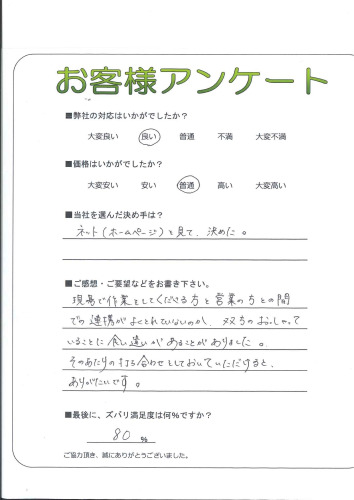 お客様アンケート
■弊社の対応はいかがでしたか?
大変良い 良い 普通 不満 大変不満
■価格はいかがでしたか?
大変安い 安い 普通 高い 大変高い
■当社を選んだ決め手は?
ネット(ホームページ)を見て、決めた。
■ご感想・ご要望などをお書き下さい。
現場で作業をしてくださる方と営業の方との間
での連携がよくとれていないのか、双方のおっしゃって
いることに食い違いがあることがありました。
そのあたりの打ち合わせをしておいていただけると、
ありがたいです。
■最後に、ズバリ満足度は何%ですか?
80 %
ご協力頂き、誠にありがとうございました。